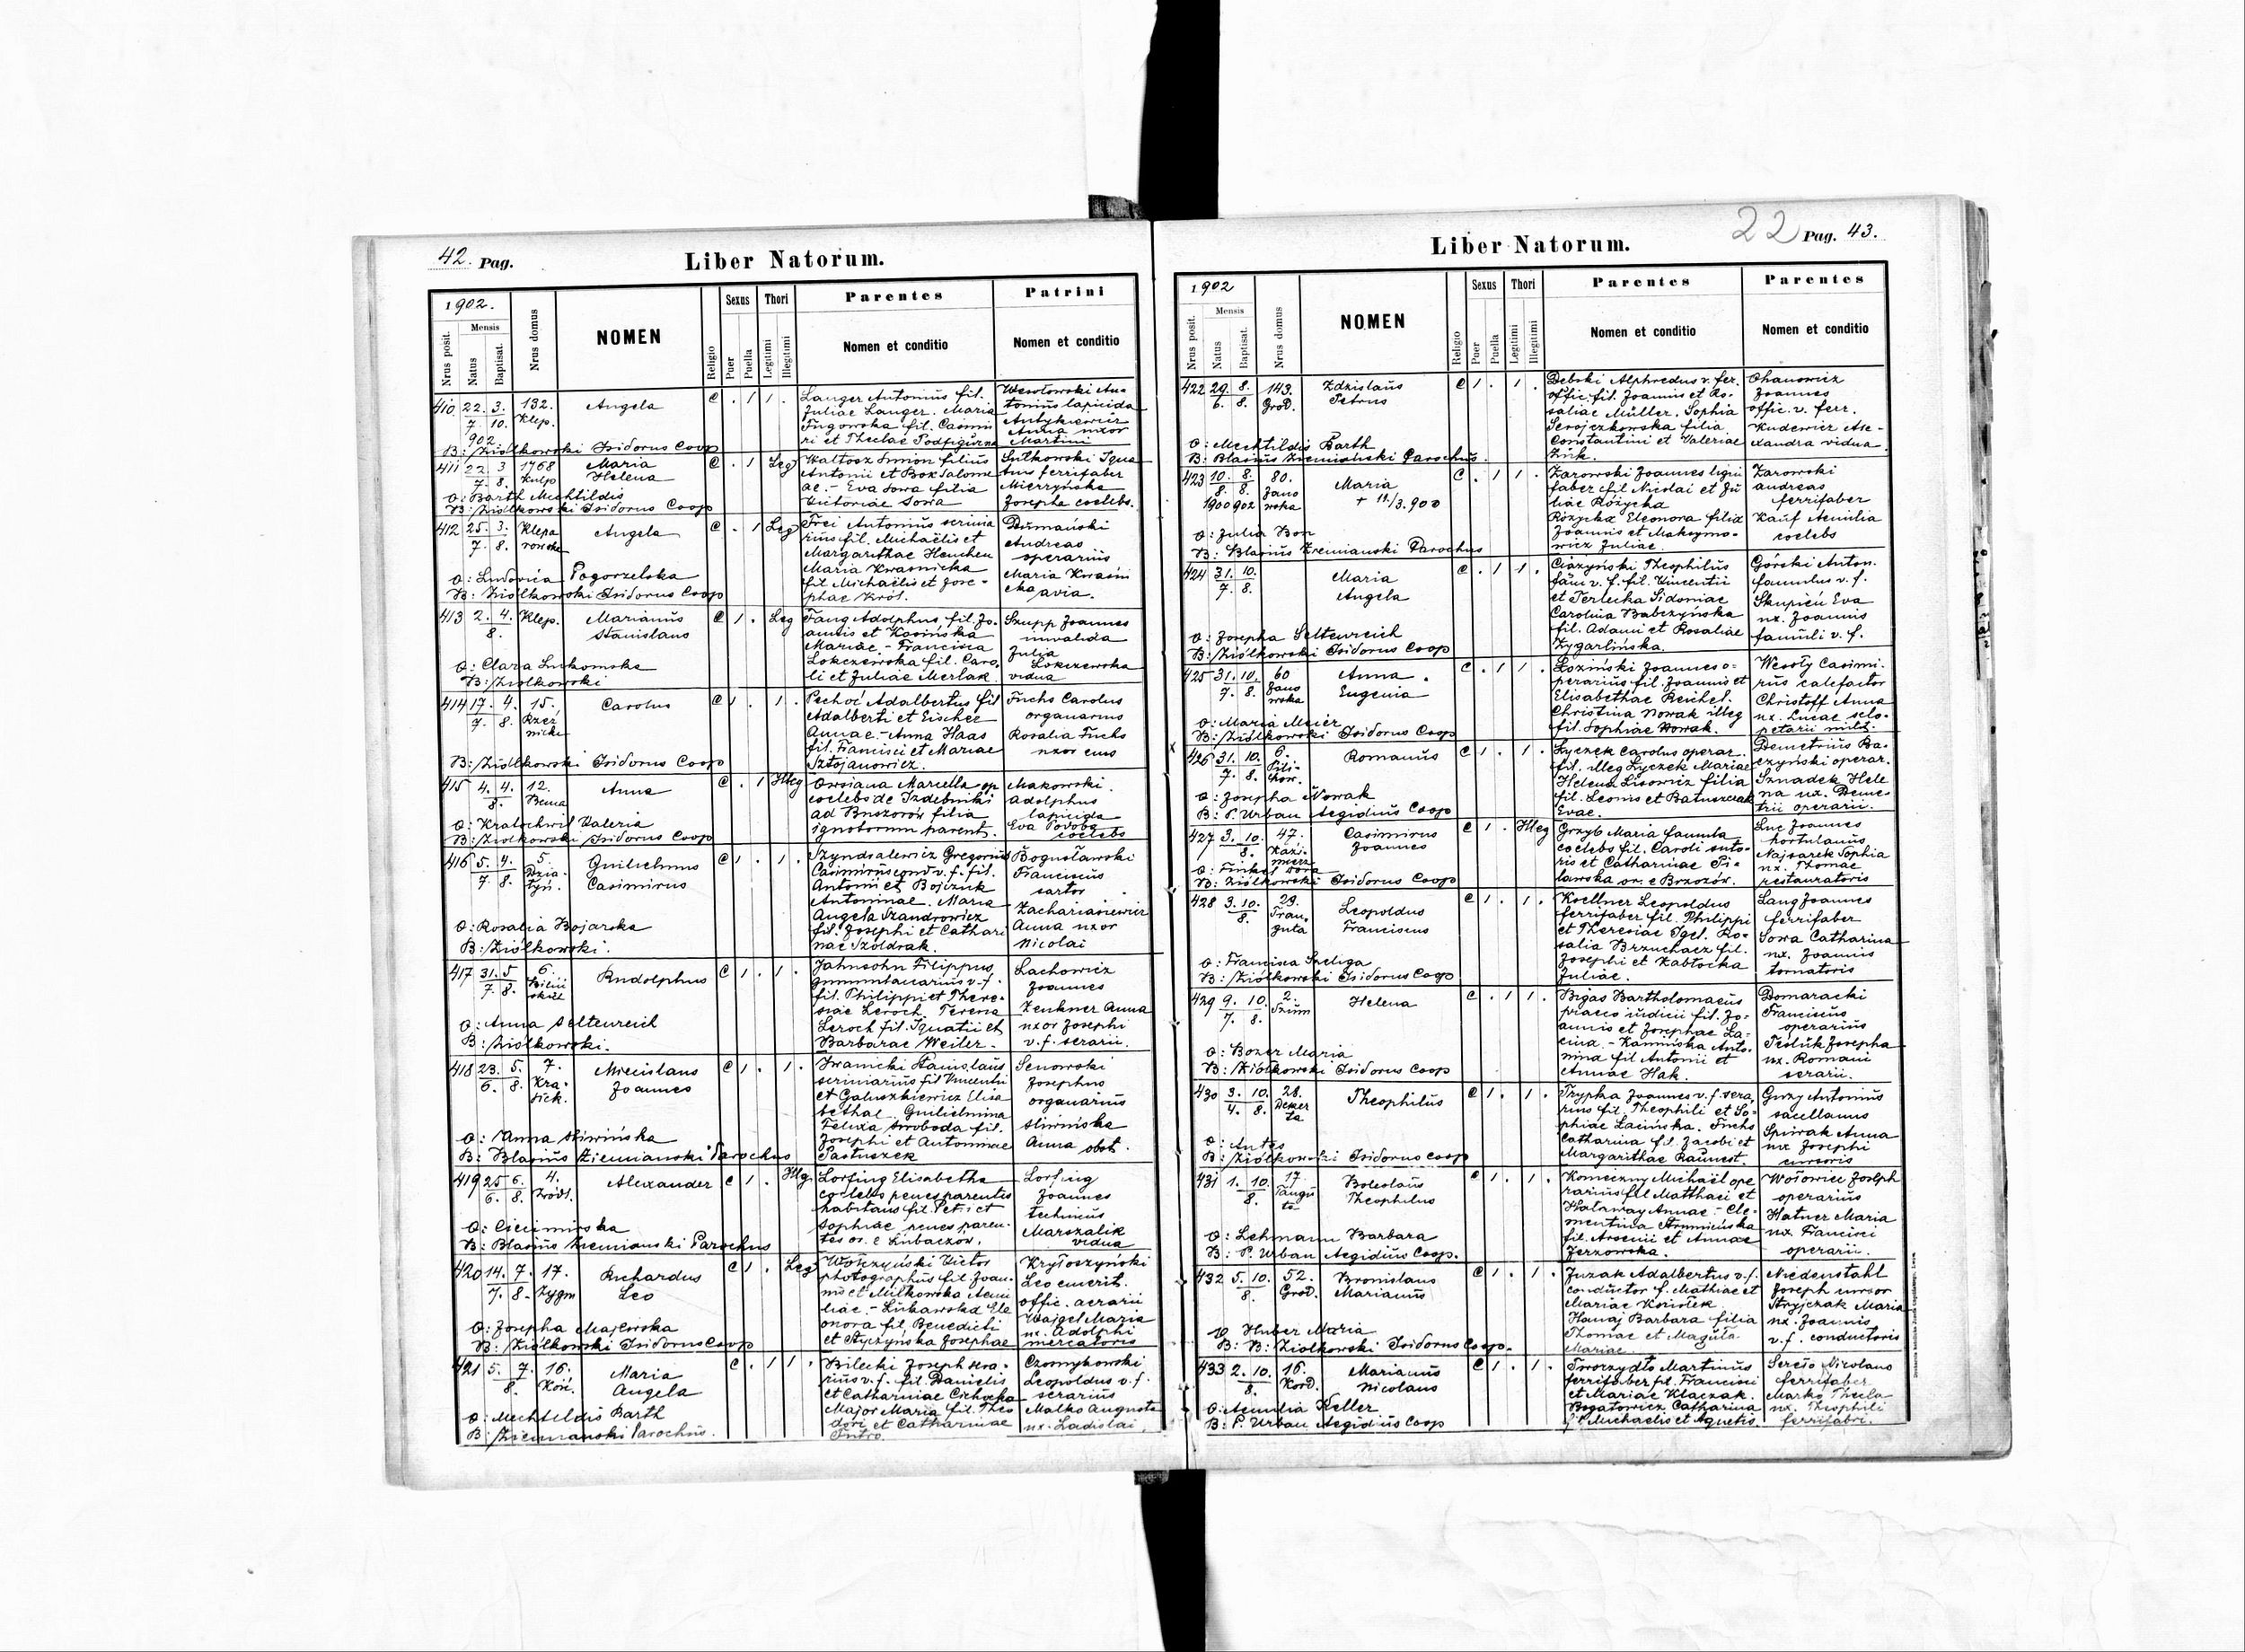 42. Pag.
Liber Natorum.
1902.
Nrus posit.
Mensis
Natus
Baptisat.
Nrus domus
NOMEN
Religio
Sexus
Puer
Puella
Thori
Legitimi
Illegitimi
Parentes
Nomen et conditio
Patrini
Nomen et conditio
410 22. 3. 132. Angela C . 1 1 .
7 10. Klep.
902
Langer Antonius fil.
Juliae Langer. Maria
fil. Casimi
ri et Theclae
Wesołowski An-
tonius lapicida
Anna uxor
Martini
B: Ziółkowski Isidorus Coop
411 22. 3 1768 Maria C . 1 Leg
7. 8. Kulp Helena
Waltosz Simon filius
Antonii et Box Salome
ae. - Eva Sowa filia
Victoriae Sowa
Sulkowski Igna
tius ferrifaber
Mierzyńska
Josepha coelebs.
O: Barth Mechtildis
B: Ziółkowski Isidorus Coop
412 25. 3. Klepa Angela C . 1 Leg
7. 8. rowska
Frei Antonius scrinia
rius fil. Michaëlis et
Margarithae
Maria Kwasnicka
fil Michaëlis et Jose-
phae Król.
Dumański
Andreas
operarius
Maria Kwaśni
cka avia.
O: Ludovica Pogorzelska
B: Ziółkowski Isidorus Coop
413 2. 4. Klep. Marianus C 1 . Leg
8. Stanislaus
Fang Adolphus, fil. Jo-
annis et Kosińska
Mariae. - Francisca
Lokczewska fil. Caro.
li et Juliae Merlak.
Szupp Joannes
invalida
Julia
Lokczewska
vidua
O: Clara Lukomska
B: Ziółkowski
414 17. 4. 15. Carolus C 1 . 1 .
7. 8. Rzeź
nicka
Pechoć Adalbertus fil
Adalberti et Eischer
Annae. - Anna Haas
fil. Francisci et Mariae
Sztojanowicz.
Fuchs Carolus
organarius
Rosalia Fuchs
uxor eius
B: Ziółkowski Isidorus Coop
415 4. 4. 12. Anna C . 1 Illeg
8. Bema
Owsiana Marcella op
coelebs de Izdebniki
ad Brzozów filia
ignotorum parent.
Makowski
Adolphus
lapicida
Eva
coelebs
O: Kratochwil Valeria
B: Ziółkowski Isidorus Coop
416 5. 4. 5. Guilielmus C 1 . 1 .
7. 8. Dzia- Casimirus
łyń.
Szyndsalewicz Gregorius
Casimirus cond v. f. fil.
Antonii et Bojczuk
Antoninae. Maria
Angela Szandrowicz
fil. Josephi et Cathari
nae Szoldrak.
Bogusławski
Franciscus
sartor
Zachariasiewicz
Anna uxor
Nicolai
O: Rosalia Bojarska
B: Ziółkowski.
417 31. 5 6. Rudolphus C 1 . 1 .
7. 8.
Jahnsohn Filippus
v. f.
fil. Philippi et There-
siae Leroch. Teresa
Leroch fil. Ignatii et
Barbarae Weiler.
Lachowicz
Joannes
Zenkner Anna
uxor Josephi
v. f. serarii.
O: Anna Seltenreich
B: Ziółkowski.
418 23. 5. 7. Miecislaus C 1 . 1 .
6. 8. Kra- Joannes
sick.
Iwanicki Stanislaus
scriniarius fil Vincentii
et Galuszkiewicz Elisa
bethae. Guilielmina
Felixa Swoboda fil.
Josephi et Antoninae
Pastuszek
Senowski
Josephus
organarius
Śliwińska
Anna obst.
O: Anna Śliwińska
B: Blasius Ziemianski Parochus
419 25 6. 4. Alexander C 1 . Illeg
6. 8. Źródl.
Lorfing Elisabetha
coelebs penes parentis
habitans fil. Petri et
Sophiae penes paren-
tes or. e Lubaczów.
Lorfing
Joannes
technicus
Marszalik
vidua
O: Ciecimirska
B: Blasius Ziemianski Parochus
420 14. 7. 17. Richardus C 1 . Leg
7. 8. Zygm Leo
Wołczyński Victor
photographus fil Joan-
nis et Milkowska Aemi
liae. - Lukawska Ele
onora fil Benedicti
et Styczyńska Josephae
Kryłoszyński
Leo emerit.
offic. aerarii
Wajgel Maria
ux. Adolphi
mercatoris
O: Josepha Majewska
B: Ziółkowski Isidorus Coop
421 5. 7. 16. Maria C . 1 1 .
8. Kość. Angela
Bilecki Joseph sera-
rius v. f. fil. Danielis
et Catharinae Cichocka
Major Maria fil. Theo
dori et Catharinae
Futro.
Czornykowski
Leopoldus v. f.
serarius
Malko Augusta
ux. Ladislai
O: Mechteldis Barth
B: Ziemianski Parochus.
22 Pag. 43.
Liber Natorum.
1902
Nrus posit.
Mensis
Natus
Baptisat.
Nrus domus
NOMEN
Religio
Sexus
Puer
Puella
Thori
Legitimi
Illegitimi
Parentes
Nomen et conditio
Parentes
Nomen et conditio
422 29. 8. 143. Zdzislaus C 1 . 1 .
6. 8. Grod. Petrus
Debski Alphredus v. fer.
offic fil. Joannis et Ro-
saliae Müller. Sophia
Serojczkowska filia
Constantini et Valeriae
Zink.
Ohanowicz
Joannes
offic. v. ferr.
Kudewicz Ale-
xandra vidua
O: Mechtildis Barth
B: Blasius Ziemianski Parochus.
423 10. 8. 80. Maria C . 1 1 .
8. 8. Jano + 11/3.900
1900 902 wska
Zarowski Joannes ligni
faber fil Nicolai et Ju
liae Różycka
Rozycka Eleonora filia
Joannis et Maksymo-
wicz Juliae.
Zarowski
Andreas
ferrifaber
Kauf Aemilia
coelebs
O: Julia Bon
B: Blasius Ziemianski Parochus
424 31. 10. Maria C . 1 1 .
7. 8. Angela
Ciazyński Theophilus
fam v. f. fil. Vincentii
et Terlecka Sidoniae
Carolina Babczyńska
fil. Adami et Rosaliae
Zygarlińska.
Górski Anton.
famulus v. f.
Skupień Eva
ux. Joannis
famuli v. f.
O: Josepha Seltenreich
B: Ziółkowski Isidorus Coop
425 31. 10. 60 Anna C . 1 1 .
7. 8. Jano Eugenia
wska
Łoziński Joannes o-
perarius fil. Joannis et
Elisabethae Reichel.
Christina Nowak illeg
fil. Sophiae Nowak.
Wesoły Casimi-
rus calefactor
Christoff Anna
ux. Lucae sclo-
petarii milit.
O: Maria Meier
B: Ziółkowski Isidorus Coop
426 31. 10. 6. Romanus C 1 . 1 .
7. 8. Pili-
chow.
Łyczek Carolus operar.
fil. illeg Łyczek Mariae
Helena Lisowicz filia
fil. Leonis et Batuszczak
Evae.
Demetrius Ba-
czyński operar.
Sznadek Hele
na ux. Deme-
trii operarii.
O: Josepha Nowak
B: P. Urban Aegidius Coop
427 3. 10. 47. Casimirus C 1 . Illeg
8. Kazi- Joannes
mierz
Grzyb Maria famula
coelebs fil. Caroli suto-
ris et Catharinae Pi-
lawska or. e Brzozów.
Luc Joannes
hortulanus
Najsarek Sophia
ux. Thomae
restauratoris
O: Finkel Dora
B: Ziółkowski Isidorus Coop
428 3. 10. 29. Leopoldus C 1 . 1 .
8. Fran- Franciscus
Koellner Leopoldus
ferrifaber fil. Philippi
et Theresiae Igel. Ro-
salia Brzuchacz fil.
Josephi et Kabłocka
Juliae.
Lang Joannes
ferrifaber
Sowa Catharina
ux. Joannis
tornatoris
O: Francisca Szeliga
B: Ziółkowski Isidorus Coop
429 9. 10. 2. Helena C . 1 1 .
7. 8. Szum
Bigas Bartholomaeus
praeco iudicii fil. Jo-
annis et Josephae La-
cina. - Kaminska Anto-
nina fil Antonii et
Annae Hak.
Domaracki
Franciscus
operarius
Tesluk Josepha
ux. Romani
serarii.
O: Bozer Maria
B: Ziółkowski Isidorus Coop
430 3. 10. 28. Theophilus C 1 . 1 .
4. 8.
Trypka Joannes v. f. sera
rius fil. Theophili et So-
phiae Lacińska. Fuchs
Catharina fil. Jacobi et
Margarithae Raunest.
Guzy Antonius
sacellanus
Spiwak Anna
ux Josephi
cursoris
O: Antos
B: Ziółkowski Isidorus Coop
431 1. 10. 17 Boleslaus C 1 . 1 .
8. Theophilus
Konieczny Michaël ope
rarius fil Matthaei et
Halamay Annae - Cle-
mentina
fil. Arsenii et Annae
Jerzowska.
Wołowiec Joseph
operarius
Hatner Maria
ux. Francisci
operarii.
O: Lehmann Barbara
B: P. Urban Aegidius Coop.
432 5. 10. 52. Bronislaus C 1 . 1 .
8. Grod. Marianus
Juzak Adalbertus v. f.
conductor f. Mathiae et
Mariae Koniołek
Hanaj Barbara filia
Thomae et Maguła
Mariae
Niedenstahl
Joseph cursor
Stryjczak Maria
ux. Joannis
v. f. conductoris
O: Huber Maria
B: Ziółkowski Isidorus Coop.
433 2. 10. 16. Marianus C 1 . 1 .
8. Kord. Nicolaus
Tworzydło Martinus
ferrifaber fil. Francisci
et Mariae Klaczak.
Bogatowicz Catharina
f. Michaelis et Agnetis
Nicolaus
ferrifaber
Marko Thecla
ux. Theophili
ferrifabri.
O: Aemilia Keller
B: P. Urban Aegidius Coop